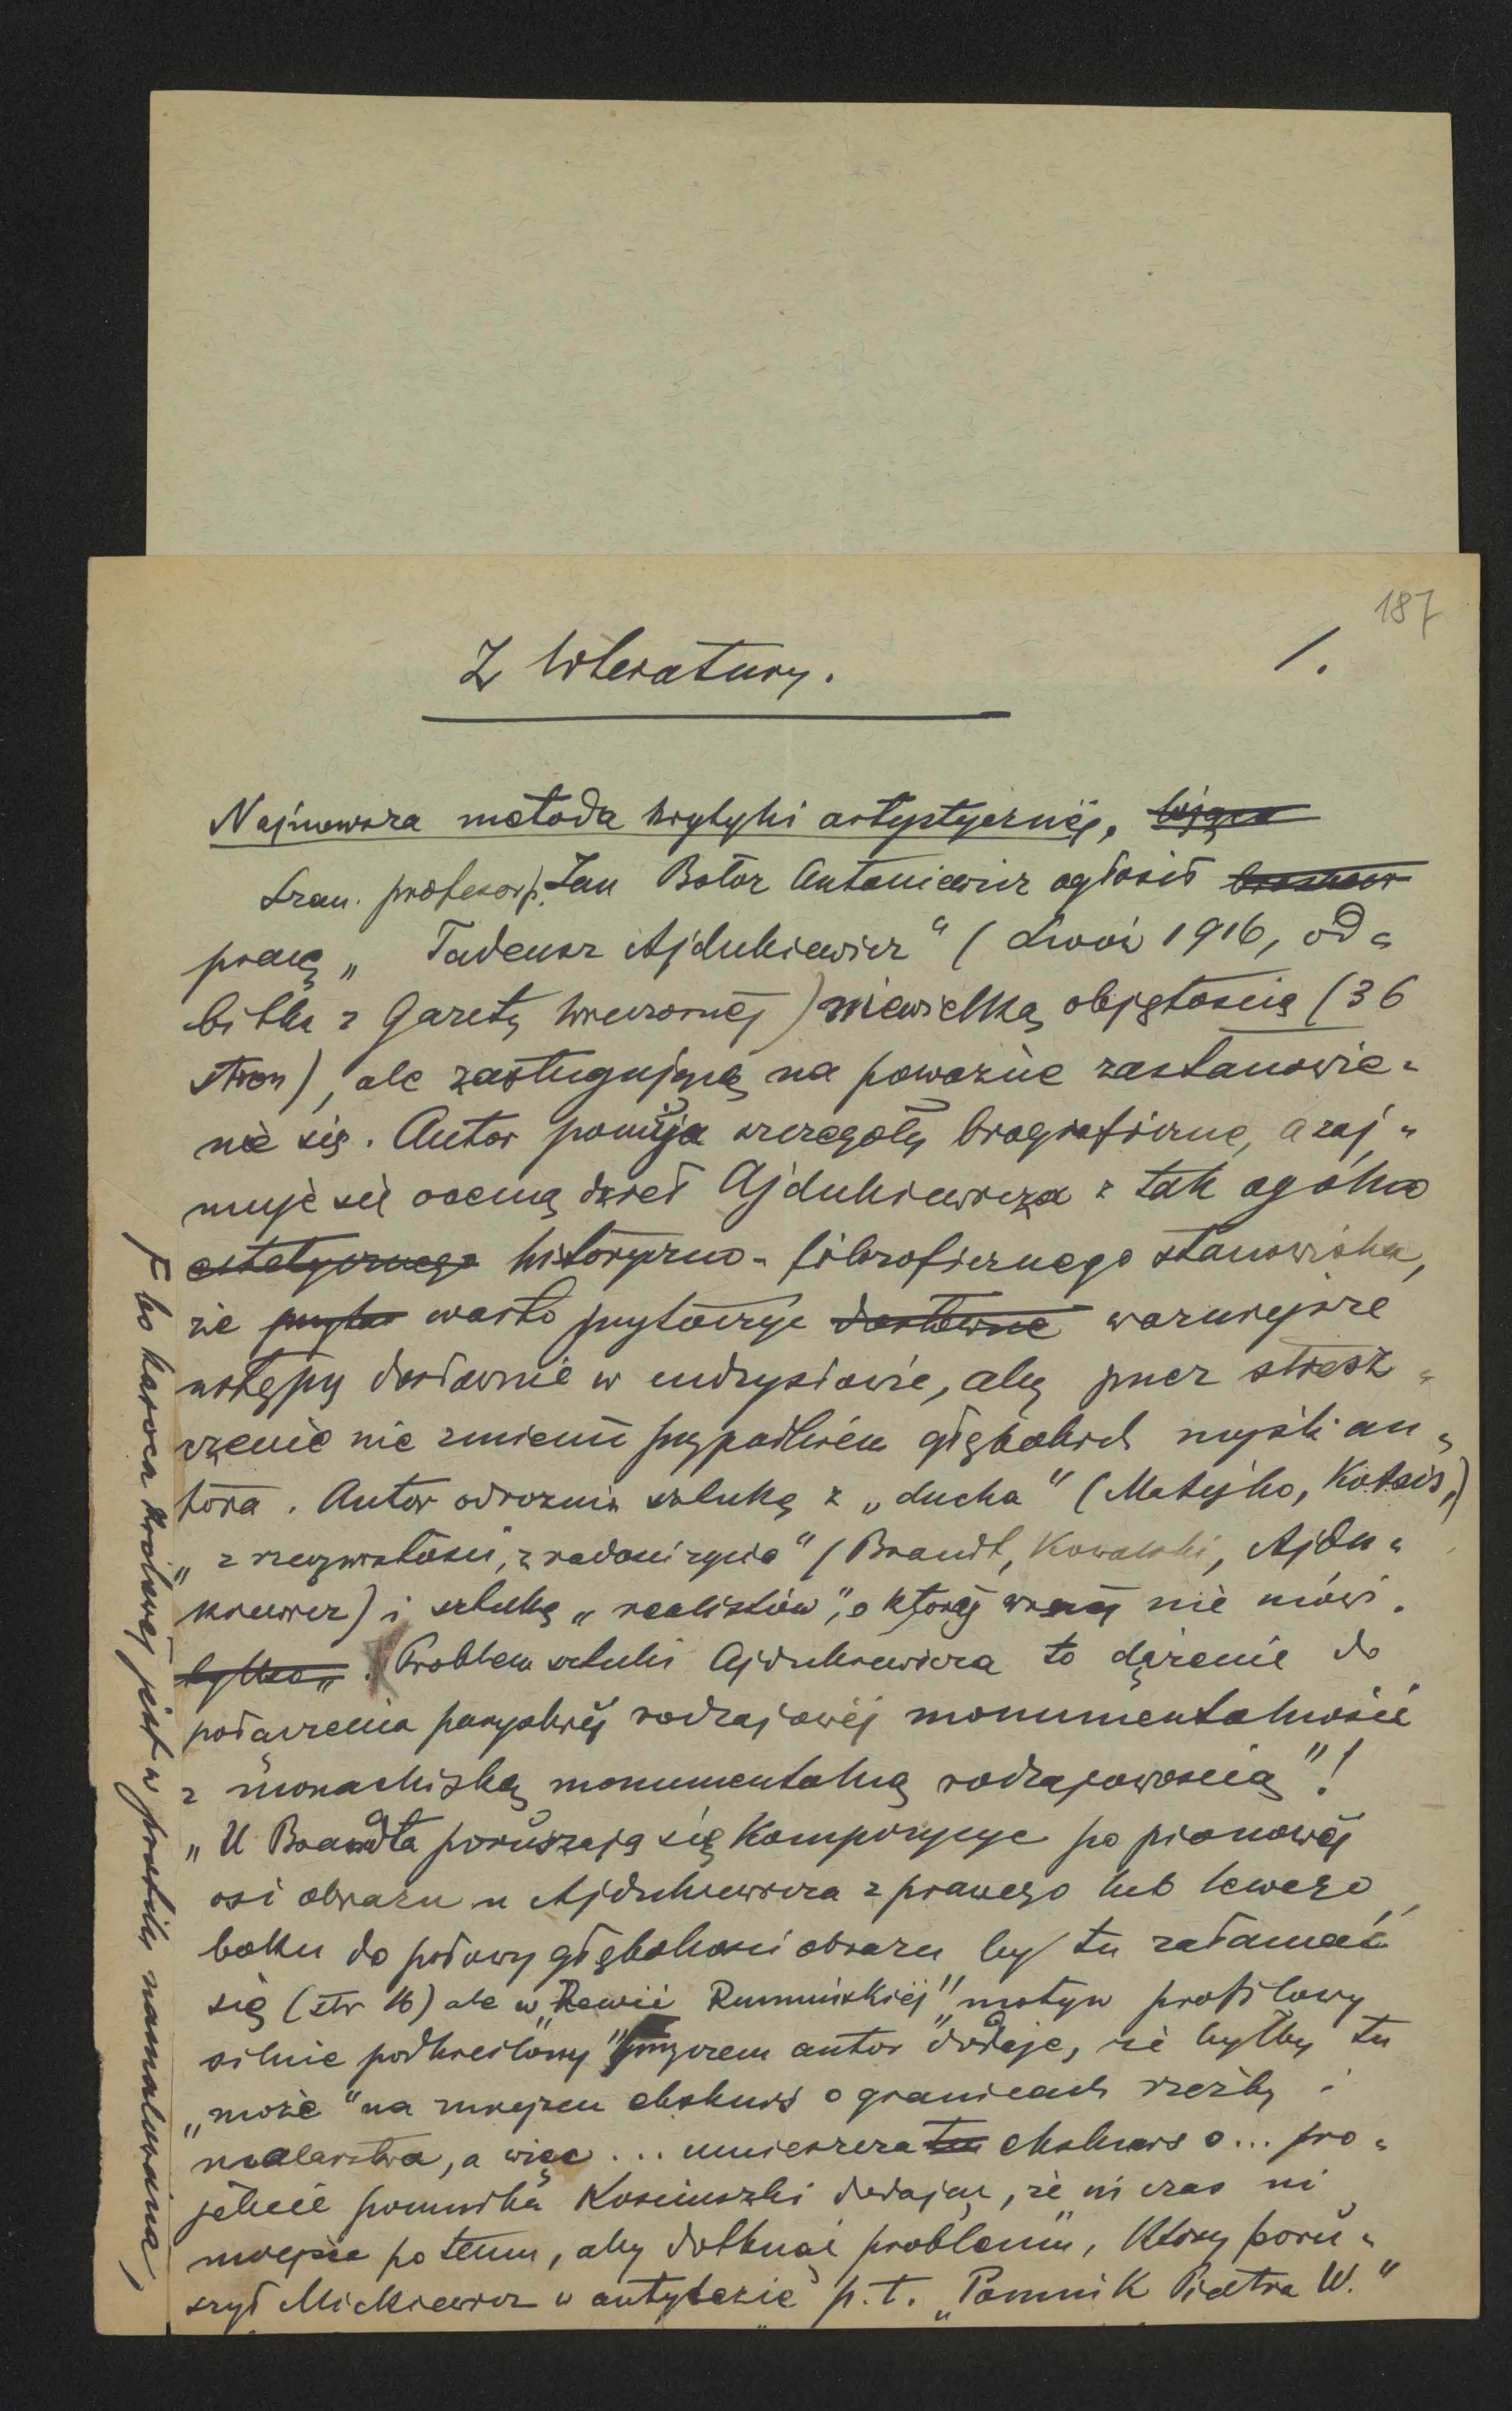 187
1.
Z literatury.
Najnowsza metoda krytyki artystycznej,
Szan. profesor p. Jan Bołoz Antoniewicz ogłosił
pracę „Tadeusz Ajdukiewicz" (Lwów 1916, od=
bitka z Gazety Wieczornej) niewielką objętością (36
stron), ale zasługującą na poważne zastanowie=
nie się. Autor pomija szczegóły biograficzne, a zaj=
muje się oceną dzieł Ajdukiewicza z tak ogólno
estetycznego historyczno-filozoficznego stanowiska,
że warto przytoczyć dosłowne ważniejsze
ustępy dosłownie w cudzysłowie, aby przez stresz=
czenie nie zmienić przypadkiem głębokich myśli au=
tora. Autor odróżnia sztukę z „ducha" (Matejko, Kotsis,)
„z rzeczywistości, z radości życia" (Brandt, Kowalski, Ajdu=
kiewicz) i sztukę „realistów", o której nie mówi.
tylko „Problem sztuki Ajdukiewicza to dążenie do
połączenia paryskiej rodzajowej monumentalności
z monachijską monumentalną rodzajowością"!
„U Brandta poruszają się kompozycye po pionowej
osi obrazu u Ajdukiewicza z prawego lub lewego
boku do połowy głębokości obrazu by tu załamać
się (str 16) ale w „Rewii Rumuńskiej" motyw profilowy
silnie podkreślony" przyczem autor dodaje, że byłby tu
„może" na miejscu ekskurs o granicach rzeźby i
malarstwa, a więc... umieszcza tu ekskurs o... pro=
jekcie pomnika Kościuszki dodając, że ni czas ni
miejsce po temu, aby dotknąć problemu, który poru=
szył Mickiewicz w antytezie p.t. „Pomnik Piotra W."
bo karoca królowej jest w profilu namalowana,